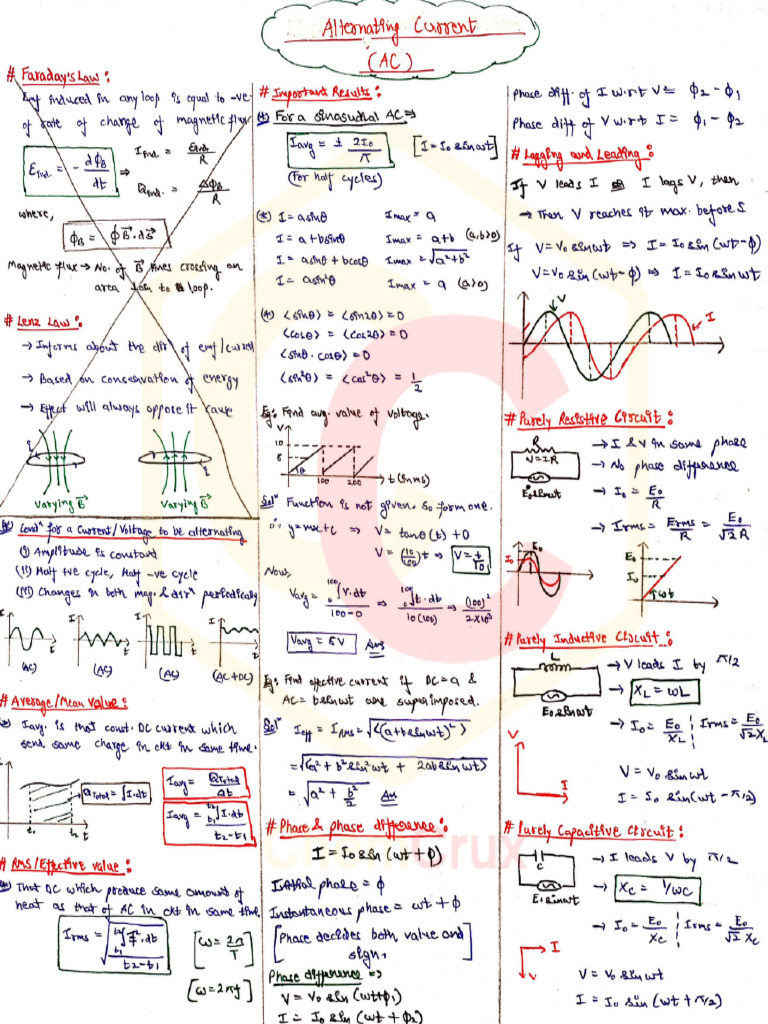 Alternating Current
(AC)
# Faraday's Law :
Emf induced in any loop is equal to -ve
of rate of change of magnetic flux
Eind. = - dϕB/dt ⇒ Iind. = Eind/R
Qind. = ΔϕB/R
where,
ϕB = ∮B⃗.dS⃗
Magnetic flux → No. of B⃗ lines crossing an
area to loop.
# Lenz Law :
→ Informs about the dirⁿ of emf/current
→ Based on conservation of energy
→ Effect will always oppose it cause
i
i
varying B⃗
varying B⃗
Condⁿ for a Current/Voltage to be alternating
(i) Amplitude is constant
(ii) Half +ve cycle, Half -ve cycle
(iii) Changes in both mag. & dirⁿ periodically
I
t
I
t
I
t
I
t
(AC)
(AC)
(AC)
(AC+DC)
# Average/Mean Value :
Iavg. is that const. DC current which
send same charge in ckt in same time.
I
t₁
t₂
t
QTotal = ∫I.dt
Iavg = QTotal/Δt
Iavg = t₁∫t₂ I.dt / t₂-t₁
# RMS/Effective value :
That DC which produce same amount of
heat as that of AC in ckt in same time.
Irms = √(t₁∫t₂ I².dt / t₂-t₁)
[ω = 2π/T]
[ω = 2πf]
# Important Results :
(*) For a sinusudial AC ⇒
Iavg = ± 2I₀/π
[I = I₀ sinωt]
(For half cycles)
(*) I = a sinθ Imax = a
I = a + b sinθ Imax = a+b (a,b>0)
I = a sinθ + b cosθ Imax = √a²+b²
I = a sin²θ Imax = a (a>0)
(*) <sinθ> = <sin2θ> = 0
<cosθ> = <cos2θ> = 0
<sinθ. cosθ> = 0
<sin²θ> = <cos²θ> = 1/2
Eg: Find avg. value of voltage.
V
10
5
θ
100
200
t (in ms)
Solⁿ Function is not given, so form one.
∵ y = mx+c ⇒ V = tanθ(t) + 0
V = (10/100)t ⇒ V = t/10
Now,
Vavg = 0∫100 V.dt / 100-0 ⇒ 0∫100 t.dt / 10(100) ⇒ (100)²/2×10³
Vavg = 5V Ans
Eg: Find effective current if DC = a &
AC = b sinωt are superimposed.
Solⁿ Ieff = IRMS = √<(a+b sinωt)²>
= √<a² + b² sin²ωt + 2ab sinωt>
= √a² + b²/2 Ans
# Phase & phase difference :
I = I₀ sin (ωt + ϕ)
Initial phase = ϕ
Instantaneous phase = ωt + ϕ
[Phase decides both value and
sign.]
Phase difference ⇒
V = V₀ sin (ωt+ϕ₁)
I = I₀ sin (ωt + ϕ₂)
Phase diff. of I w.r.t V = ϕ₂ - ϕ₁
Phase diff of V w.r.t I = ϕ₁ - ϕ₂
# Lagging and Leading :
If V leads I or I lags V, then
→ Then V reaches it max. before I
If V = V₀ sinωt ⇒ I = I₀ sin (ωt-ϕ)
V = V₀ sin (ωt-ϕ) ⇒ I = I₀ sin ωt
V
I
# Purely Resistive Circuit :
R
V=IR
E₀ sinωt
→ I & V in same phase
→ No phase difference
→ I₀ = E₀/R
→ Irms = Erms/R = E₀/√2 R
E₀
I₀
E₀
I₀
ωt
# Purely Inductive Circuit :
L
E₀ sinωt
→ V leads I by π/2
→ XL = ωL
→ I₀ = E₀/XL | Irms = E₀/√2 XL
V
I
V = V₀ sinωt
I = I₀ sin(ωt - π/2)
# Purely Capacitive Circuit :
C
E₀ sinωt
→ I leads V by π/2
→ XC = 1/ωC
→ I₀ = E₀/XC | Irms = E₀/√2 XC
I
V
V = V₀ sinωt
I = I₀ sin (ωt + π/2)
Crux